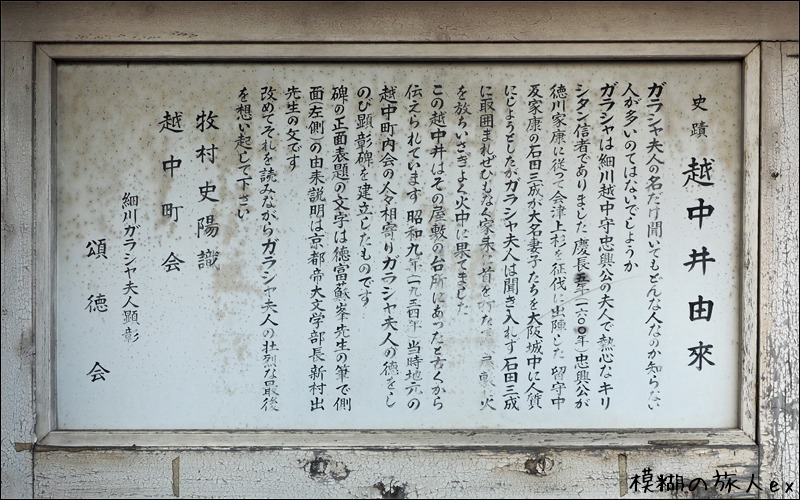 史蹟 越中井由來
ガラシャ夫人の名だけ聞いてもどんな人なのか知らない
人が多いのではないでしょうか
ガラシャは細川越中守忠興公の夫人で熱心なキリ
シタン信者でありました 慶長五年(一六〇〇年)忠興公が
徳川家康に従って会津上杉を征伐に出陣した留守中
反家康の石田三成が大名妻子たちを大阪城中に人質
にしようとしたがガラシャ夫人は聞き入れず石田三成
に取囲まれぜひもなく家来に首を打
火
を放ちいさぎよく火中に果てました
この越中井はその屋敷の台所にあったと古くから
伝えられています 昭和九年(一九三四年)当時地元の
越中町内会の人々相寄りガラシャ夫人の徳をし
のび顕彰碑を建立したものです
碑の正面表題の文字は徳富蘇峯先生の筆で側
面(左側)の由来説明は京都帝大文学部長新村出
先生の文です
改めてそれを読みながらガラシャ夫人の壮烈な最後
を想い起して下さい
牧村史陽識
越中町会
細川ガラシャ夫人顕彰
頌徳会
模糊の旅人ex